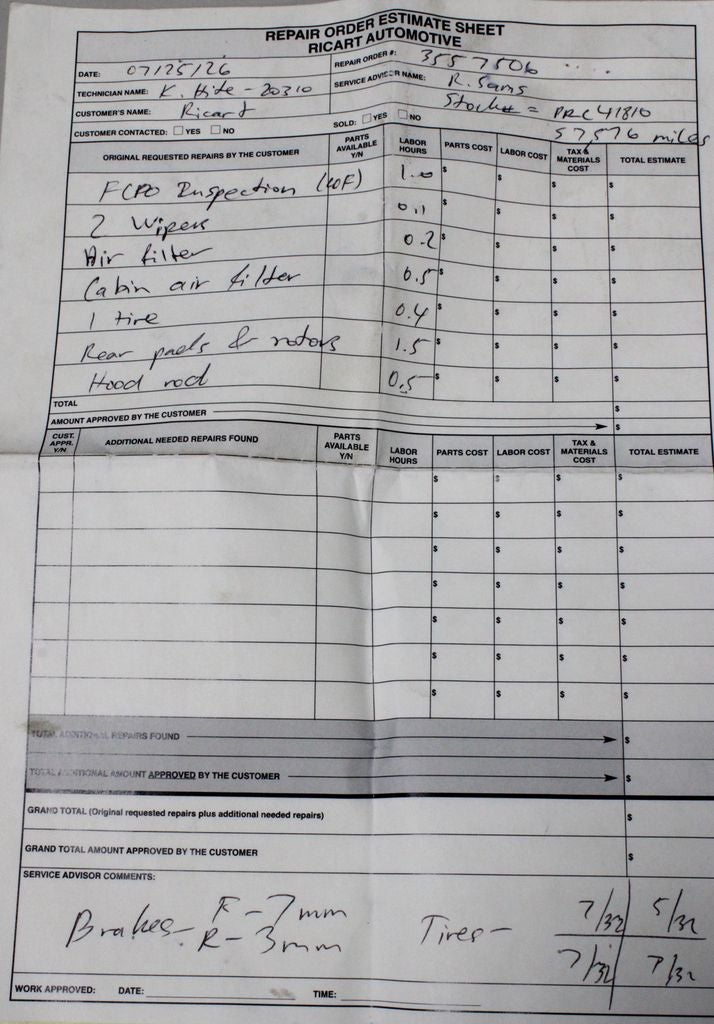 REPAIR ORDER ESTIMATE SHEET
RICART AUTOMOTIVE
DATE: 07/25/26 REPAIR ORDER #: 3557506
TECHNICIAN NAME: K. Hite - 20310 SERVICE ADVISOR NAME: R. Sams
CUSTOMER'S NAME: Ricart Stock# = PRC41810
CUSTOMER CONTACTED: YES NO SOLD: YES NO 57,576 miles
ORIGINAL REQUESTED REPAIRS BY THE CUSTOMER PARTS AVAILABLE Y/N LABOR HOURS PARTS COST LABOR COST TAX & MATERIALS COST TOTAL ESTIMATE
FCPO Inspection (LOF) 1.0 $ $ $ $
2 Wipers 0.1 $ $ $ $
Air filter 0.2 $ $ $ $
Cabin air filter 0.5 $ $ $ $
1 tire 0.4 $ $ $ $
Rear pads & rotors 1.5 $ $ $ $
Hood rod 0.5 $ $ $ $
TOTAL $
AMOUNT APPROVED BY THE CUSTOMER $
CUST. APPR. Y/N ADDITIONAL NEEDED REPAIRS FOUND PARTS AVAILABLE Y/N LABOR HOURS PARTS COST LABOR COST TAX & MATERIALS COST TOTAL ESTIMATE
$ $ $ $
$ $ $ $
$ $ $ $
$ $ $ $
$ $ $ $
$ $ $ $
$ $ $ $
TOTAL ADDITIONAL REPAIRS FOUND $
TOTAL ADDITIONAL AMOUNT APPROVED BY THE CUSTOMER $
GRAND TOTAL (Original requested repairs plus additional needed repairs) $
GRAND TOTAL AMOUNT APPROVED BY THE CUSTOMER $
SERVICE ADVISOR COMMENTS:
Brakes- F - 7mm Tires- 7/32 5/32
R - 3mm 7/32 7/32
WORK APPROVED: DATE: TIME: